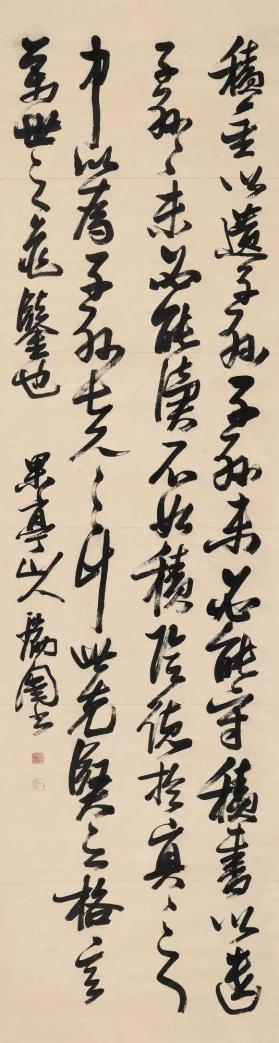 積金以遺子孫子孫未必能守積書以遺
子孫々未必能讀不如積陰德於冥々之
中以爲子孫長久之計此先賢之格言
萬世之龜鑒也
果亭山人